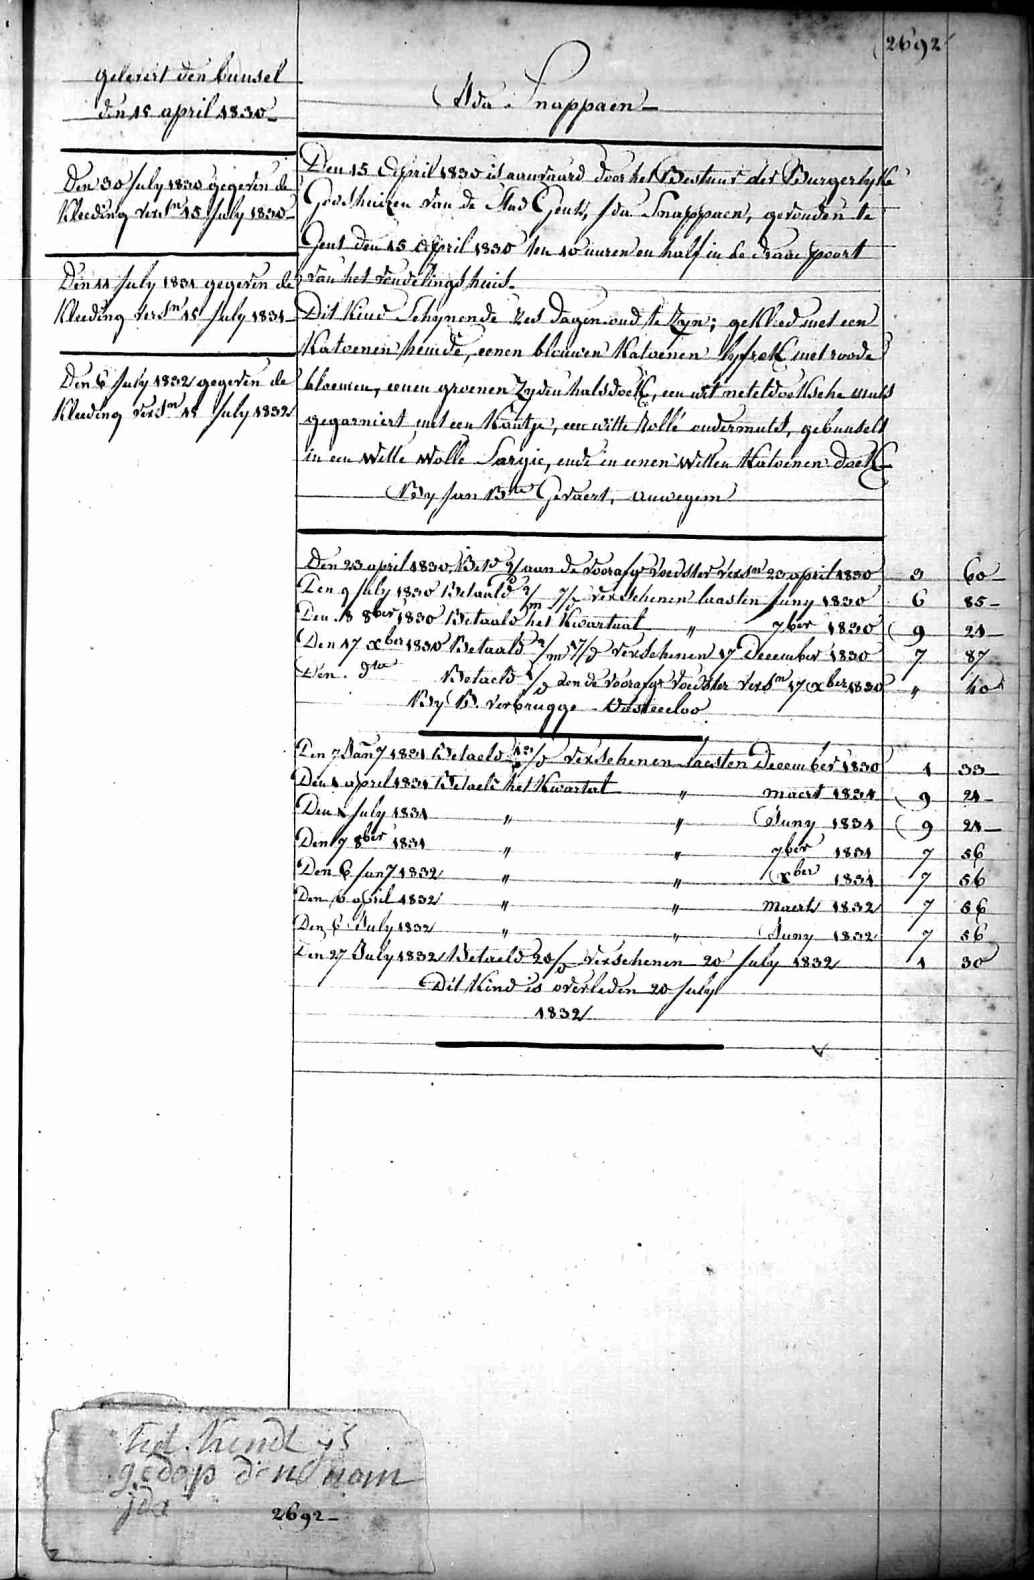 2692
gelevert den bunsel
den 15 april 1830
Ida Snappaen
Den 30 July 1830 gegeven de
Kleeding versn 15 July 1830
Den 11 July 1831 gegeven de
Kleeding versn 15 July 1831
Den 6 July 1832 gegeven de
Kleeding versn 15 July 1832
Den 15 April 1830 is aanvaard door het Bestuur der Burgerlyke
Godshuizen van de Stad Gent, Ida Snappaen, gevonden te
Gent den 15 April 1830 ten 10 uuren en half in de draai poort
van het vondelingshuis.
Dit kind Schynende zes dagen oud te zyn; gekleed met een
Katoenen hemde, eenen blauwen Katoenen lyfrok met roode
bloemen, eenen groenen Zyden halsdoek, een wit neteldoeksche muts
gegarniert met een Kantje, een witte Wolle ondermuts, gebunselt
in een Witte Wolle Sargie, ende in eenen Witten Katoenen doek
By Jan Bte Gevaert, Auwegem
Den 23 april 1830, Bet. aan de voorafge voedster versn 23 april 1830 3 60
Den 9 July 1830 Betaald 2/m 7/d verschenen laasten Juny 1830 6 85
Den 8 8ber 1830 Betaald het Kwartaal " 7ber 1830 9 21
Den 17 xber 1830 Betaald 2/m 17/d verschenen 17 December 1830 7 87
Den dto Betaeld aen de voorafge voedster versn 17 xber 1830 " 40
By B. Verbrugge Oosteecloo
Den 7 Jany 1831 Betaeld 13/d verschenen laesten December 1830 1 33
Den april 1831 Betaeld het Kwartal " maert 1831 9 21
Den July 1831 " " Juny 1831 9 21
Den 7 8ber 1831 " " 7ber 1831 7 56
Den 6 Jany 1832 " " xber 1831 7 56
Den 6 april 1832 " " Maert 1832 7 56
Den 6 July 1832 " " Juny 1832 7 56
Den 27 July 1832 Betaeld 20/d verschenen 20 July 1832 1 30
Dit Kind is overleden 20 July
1832
het kindt ys
gedop den nam
jda
2692